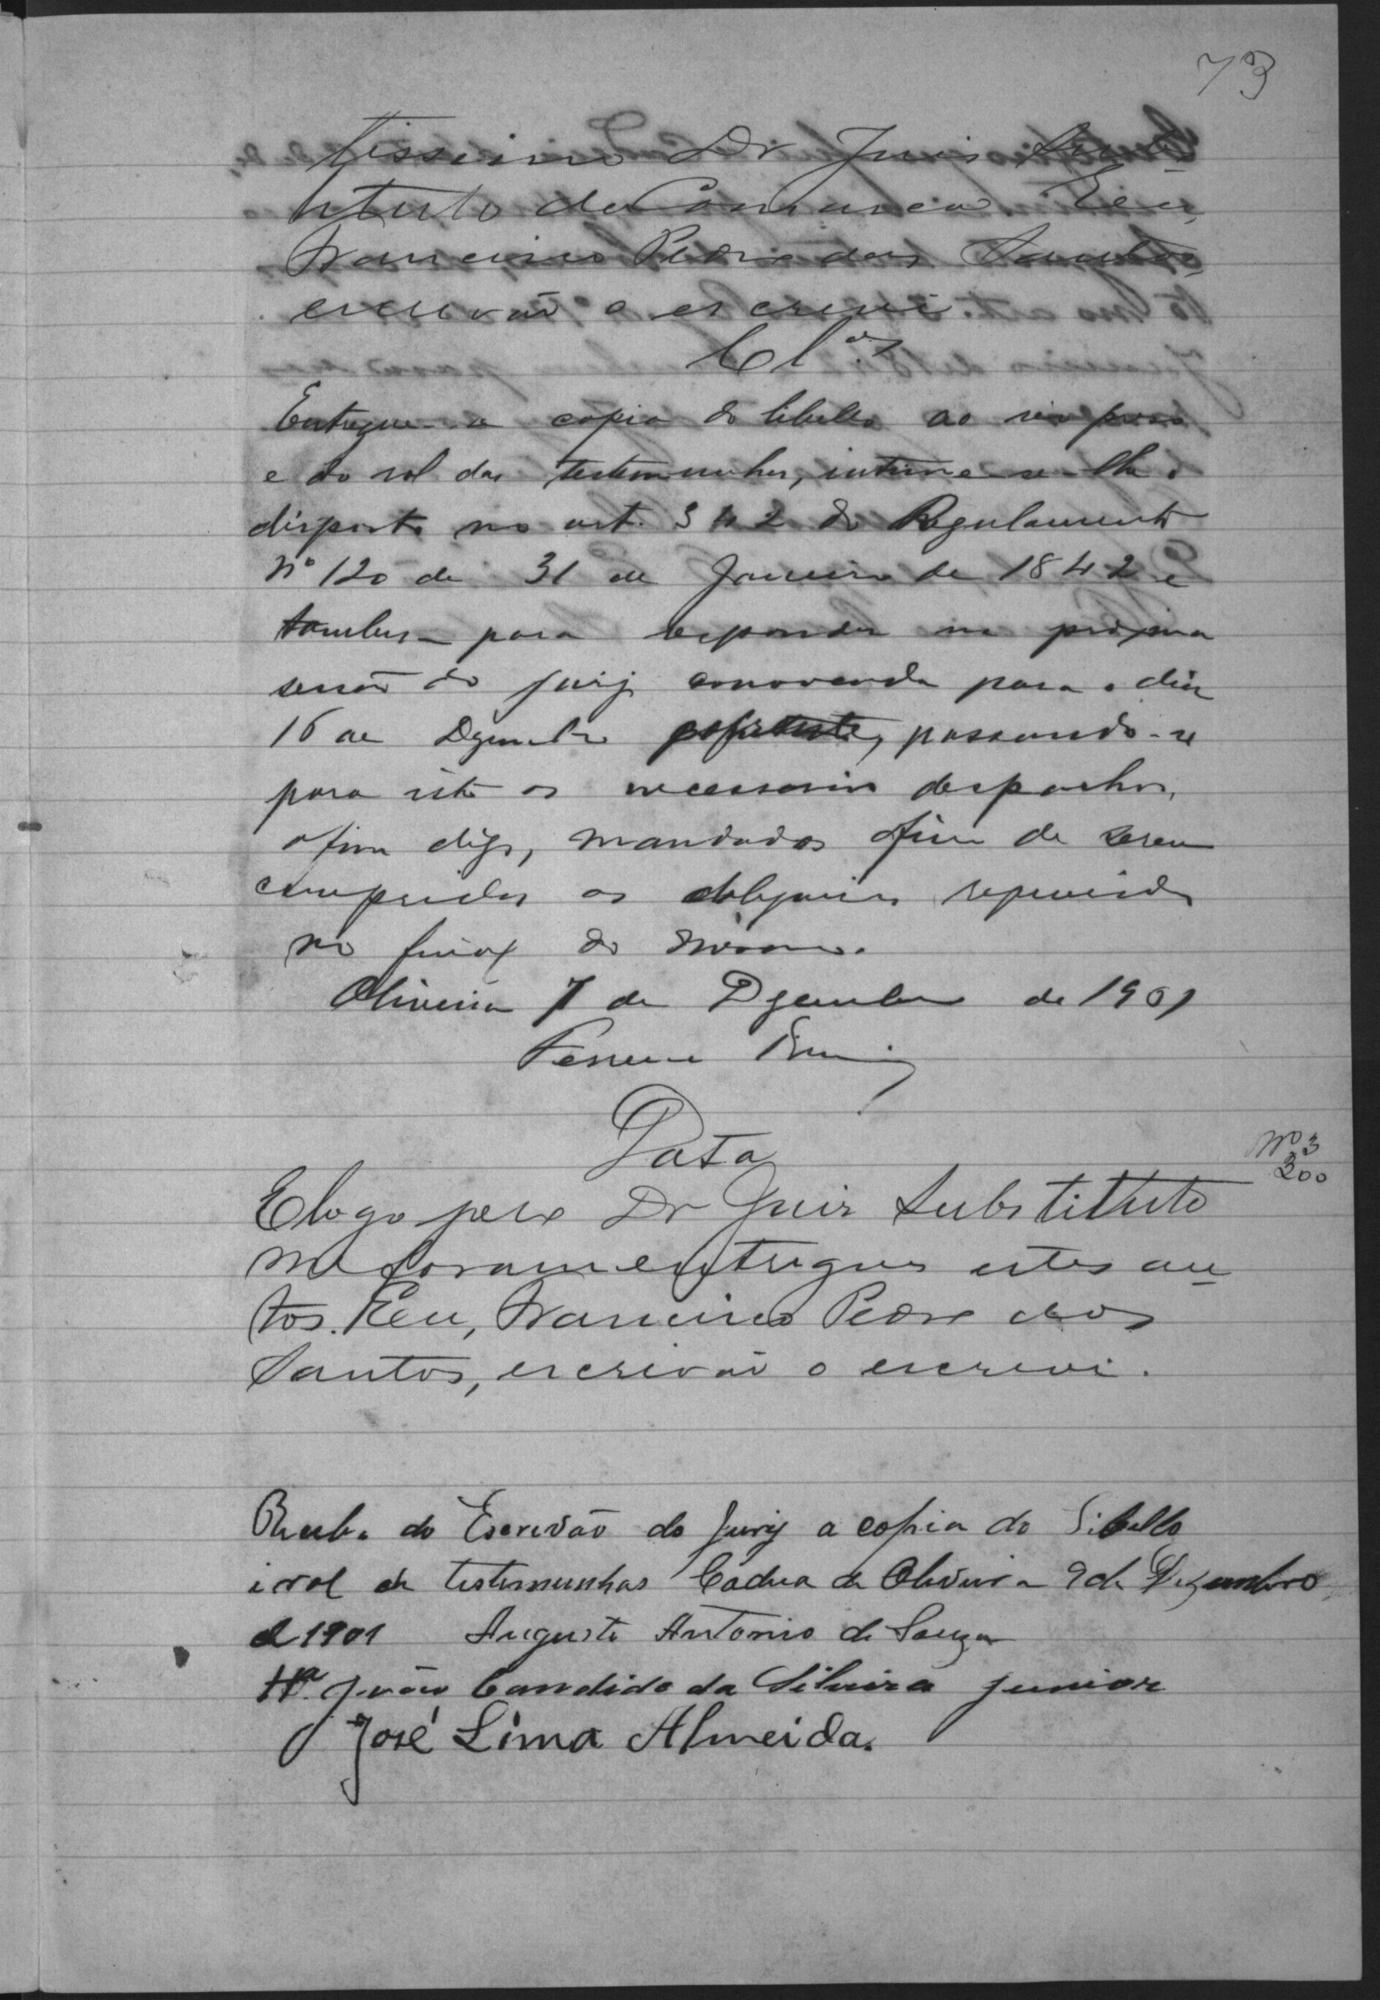 73
tissimo Dr Juis Subs-
tituto da Comarca. Eu,
Francisco Pedro dos Santos,
escrivão o escrevi
Cl.os
Entregue-se a copia do libello ao réo preso
e do rol das testemunhas, intime-se-lhe o
disposto no art. 342 do Regulamento
Nº 120 de 31 de Janeiro de 1842 e
tambem para responder na proxima
sessão do jury convocada para o dia
16 de Dezembro passando-se
para isto os necessarios despachos,
afim digo, mandados afim de serem
cumpridas as deligencias requeridas
no final do mesmo.
Oliveira 7 de Dezembro de 1901
Ferreira
Data
E logo pelo Dr Juiz Substituto
me foram entregues estes au-
tos. Eu, Francisco Pedro dos
Santos, escrivão o escrevi.
Nº 3
300
Recebi do Escrivão do Jury a copia do Libello
i rol de testemunhas Cadea de Oliveira 9 de Dezembro
de 1901 Augusto Antonio de Souza
Ta. João Candido da Silveira Junior
José Lima Almeida.